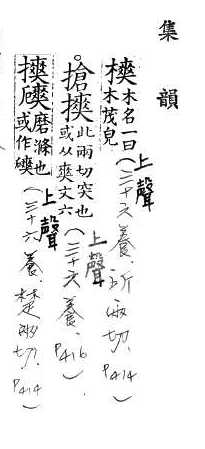 集韻
樉木名一曰木茂皃上聲(三十六養.所兩切.P414)
搶摤此兩切突也或从爽文六上聲(三十六養.P416)
摤磨滌也或作上聲(三十六養.楚兩切.P414)